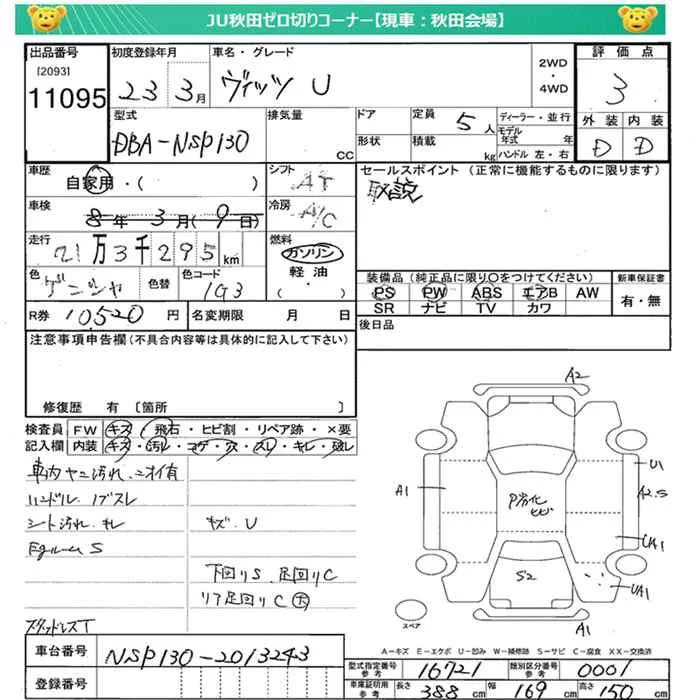 JU秋田ゼロ切りコーナー【現車：秋田会場】
出品番号
[2093]
11095
初度登録年月
23 3月
車名・グレード
ヴィッツ U
2WD
・
4WD
評価点
3
外装 内装
D D
型式
DBA-NSP130
排気量
CC
ドア
形状
定員 5人
積載 kg
ディーラー・並行
モデル年式 年
ハンドル 左・右
車歴
自家用・( )
シフト
AT
セールスポイント (正常に機能するものに限ります)
取説
車検
8年 3月(9日)
冷房
A/C
走行
21万3千295km
燃料
ガソリン
軽油
( )
色
色替
色コード
1G3
装備品(純正品に限り○をつけてください)
PS PW ABS エアB AW
SR ナビ TV カワ
新車保証書
有・無
R券 10520円
名変期限 月 日
後日品
注意事項申告欄(不具合内容等は具体的に記入して下さい)
修復歴 有 [箇所 ]
検査員記入欄
FW キズ・飛石・ヒビ割・リペア跡・×要
内装 キズ・汚レ・コゲ・穴・スレ・キレ・破レ
車内ヤニ汚れ.ニオイ有
ハンドル.ノブスレ
シート汚れ.キレ
キズ.U
下回りS.足回りC
リア足回りC 大
スタッドレスT
A2
A1
U1
A2.S
P劣化
ヒビ
UA1
S2
UA1
A1
スペア
A-キズ E-エクボ U-凹み W-補修跡 S-サビ C-腐食 XX-交換済
車台番号
NSP130-2013243
登録番号
型式指定番号 参考 16721
類別区分番号 参考 0001
車庫証明用 参考 長さ 388 幅 169 高さ 150